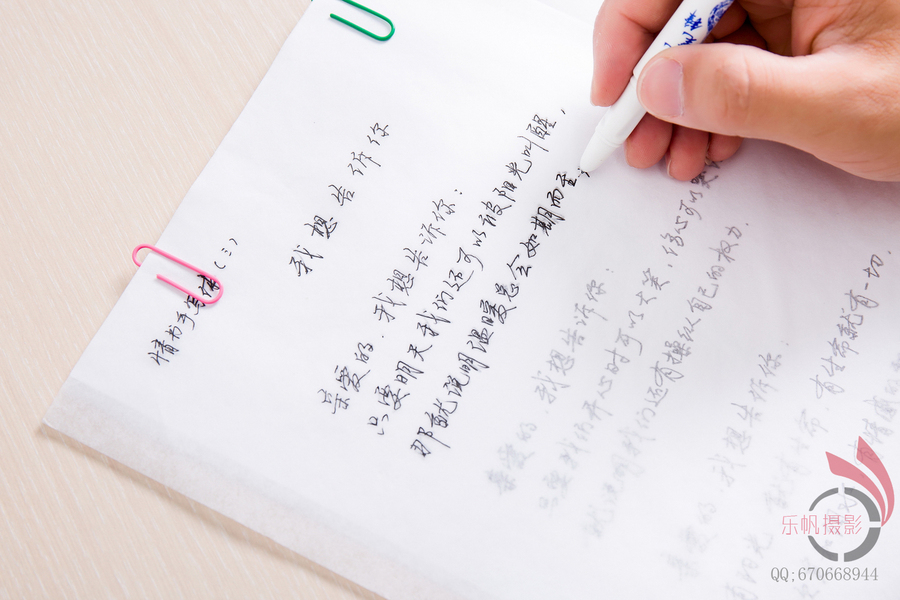 情书手写体(三)
我想告诉你
亲爱的.我想告诉你:
只要明天我们还可以被阳光叫醒,
那就说明温暖总会如期而至
亲爱的.我想告诉你:
只要我们开心时可以大笑,伤心可以哭
就说明我们还有操纵自己的权力.
亲爱的.我想告诉你:
有生命就有一切.
乐帆摄影
QQ;670668944